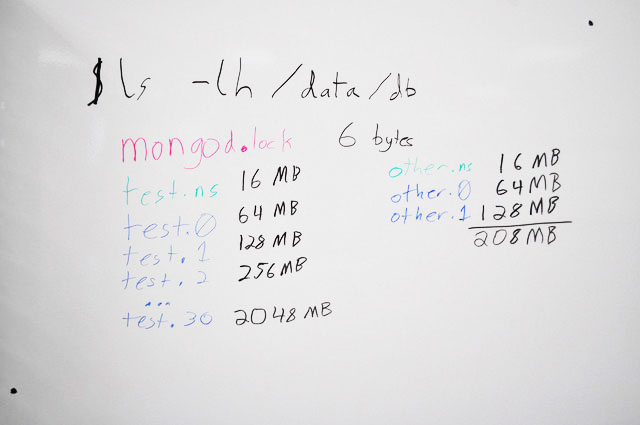 $ ls -lh /data/db
mongod.lock 6 bytes
test.ns 16 MB
test.0 64 MB
test.1 128 MB
test.2 256 MB
...
test.30 2048 MB
other.ns 16 MB
other.0 64 MB
other.1 128 MB
208 MB